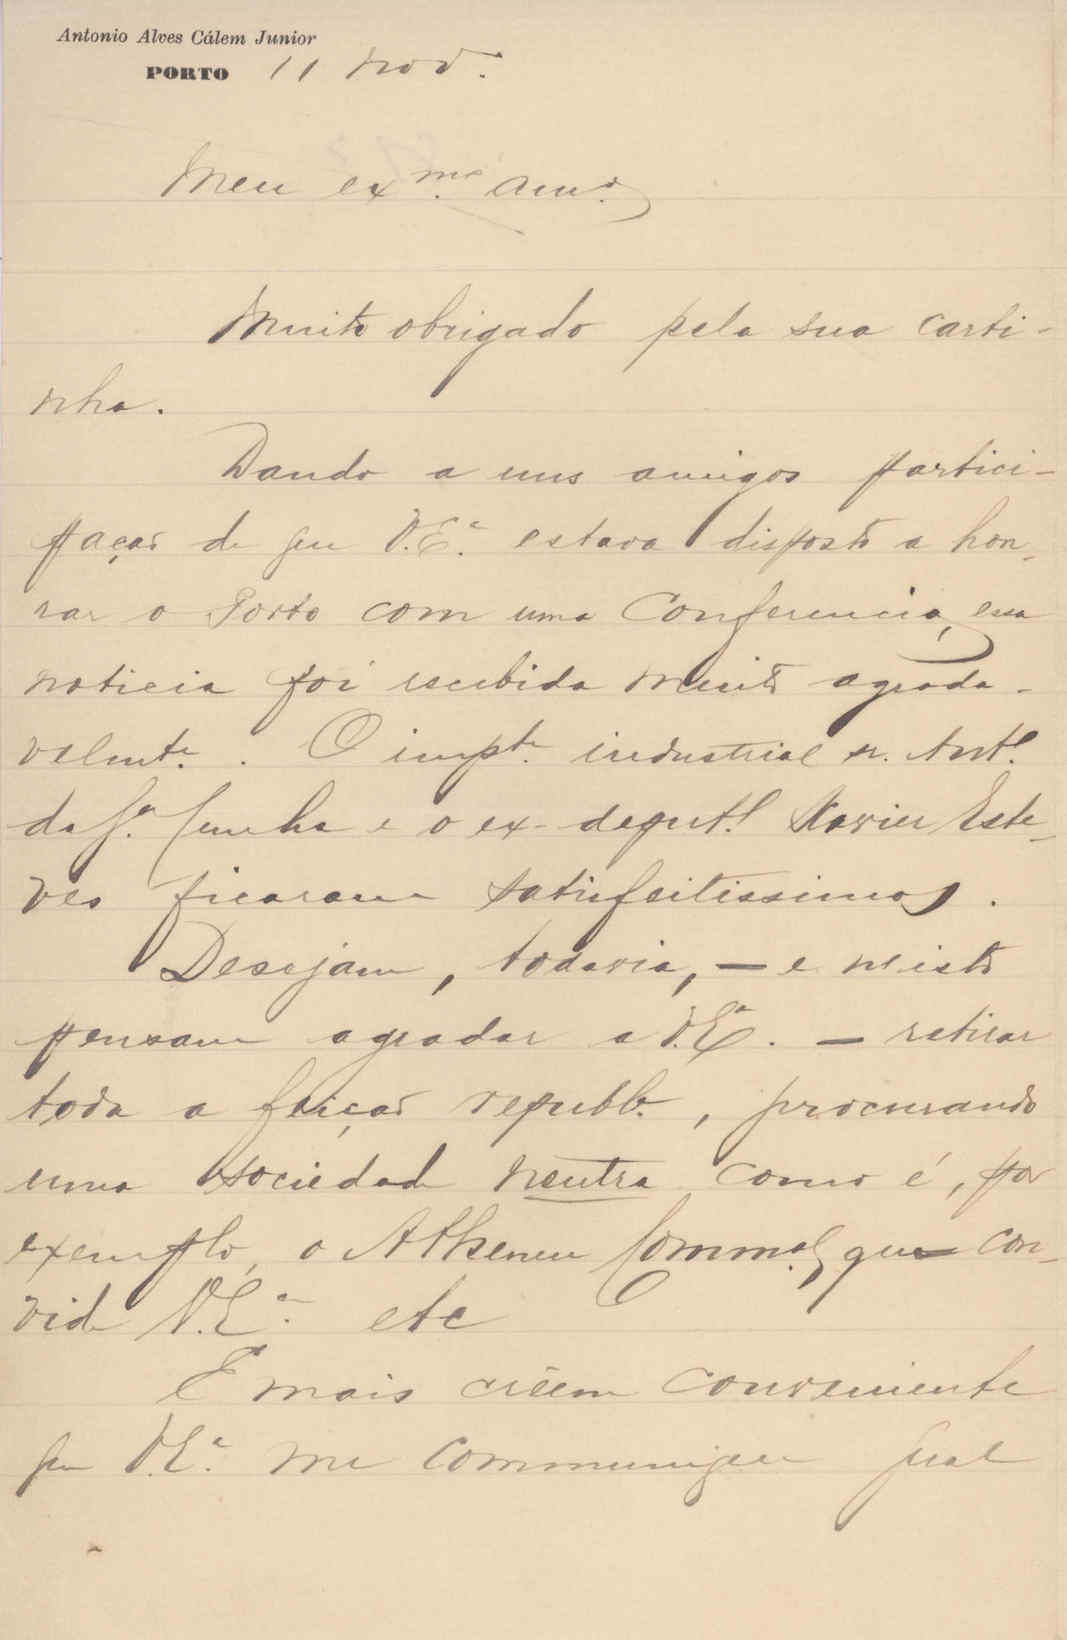 Antonio Alves Cálem Junior
PORTO 11 Nov.
Meu exmo. amo.
Muito obrigado pela sua carti-
nha.
Dando a uns amigos partici-
pação de que V.Ea. estava disposto a hon-
rar o Porto com uma Conferencia, essa
noticia foi recebida muito agrada-
velmte. O impte. industrial sr. Anto.
da Sa. Cunha e o ex-deputo. Xavier Este-
ves ficaram satisfeitissimos.
Desejam, todavia, — e nisto
pensam agradar a V.Ea. — retirar
toda a feição republa., procurando
uma sociedade neutra como é, por
exemplo, o Atheneu Commal, que con-
vide V.Ea. etc
E mais crêem conveniente
que V.Ea. me communique qual